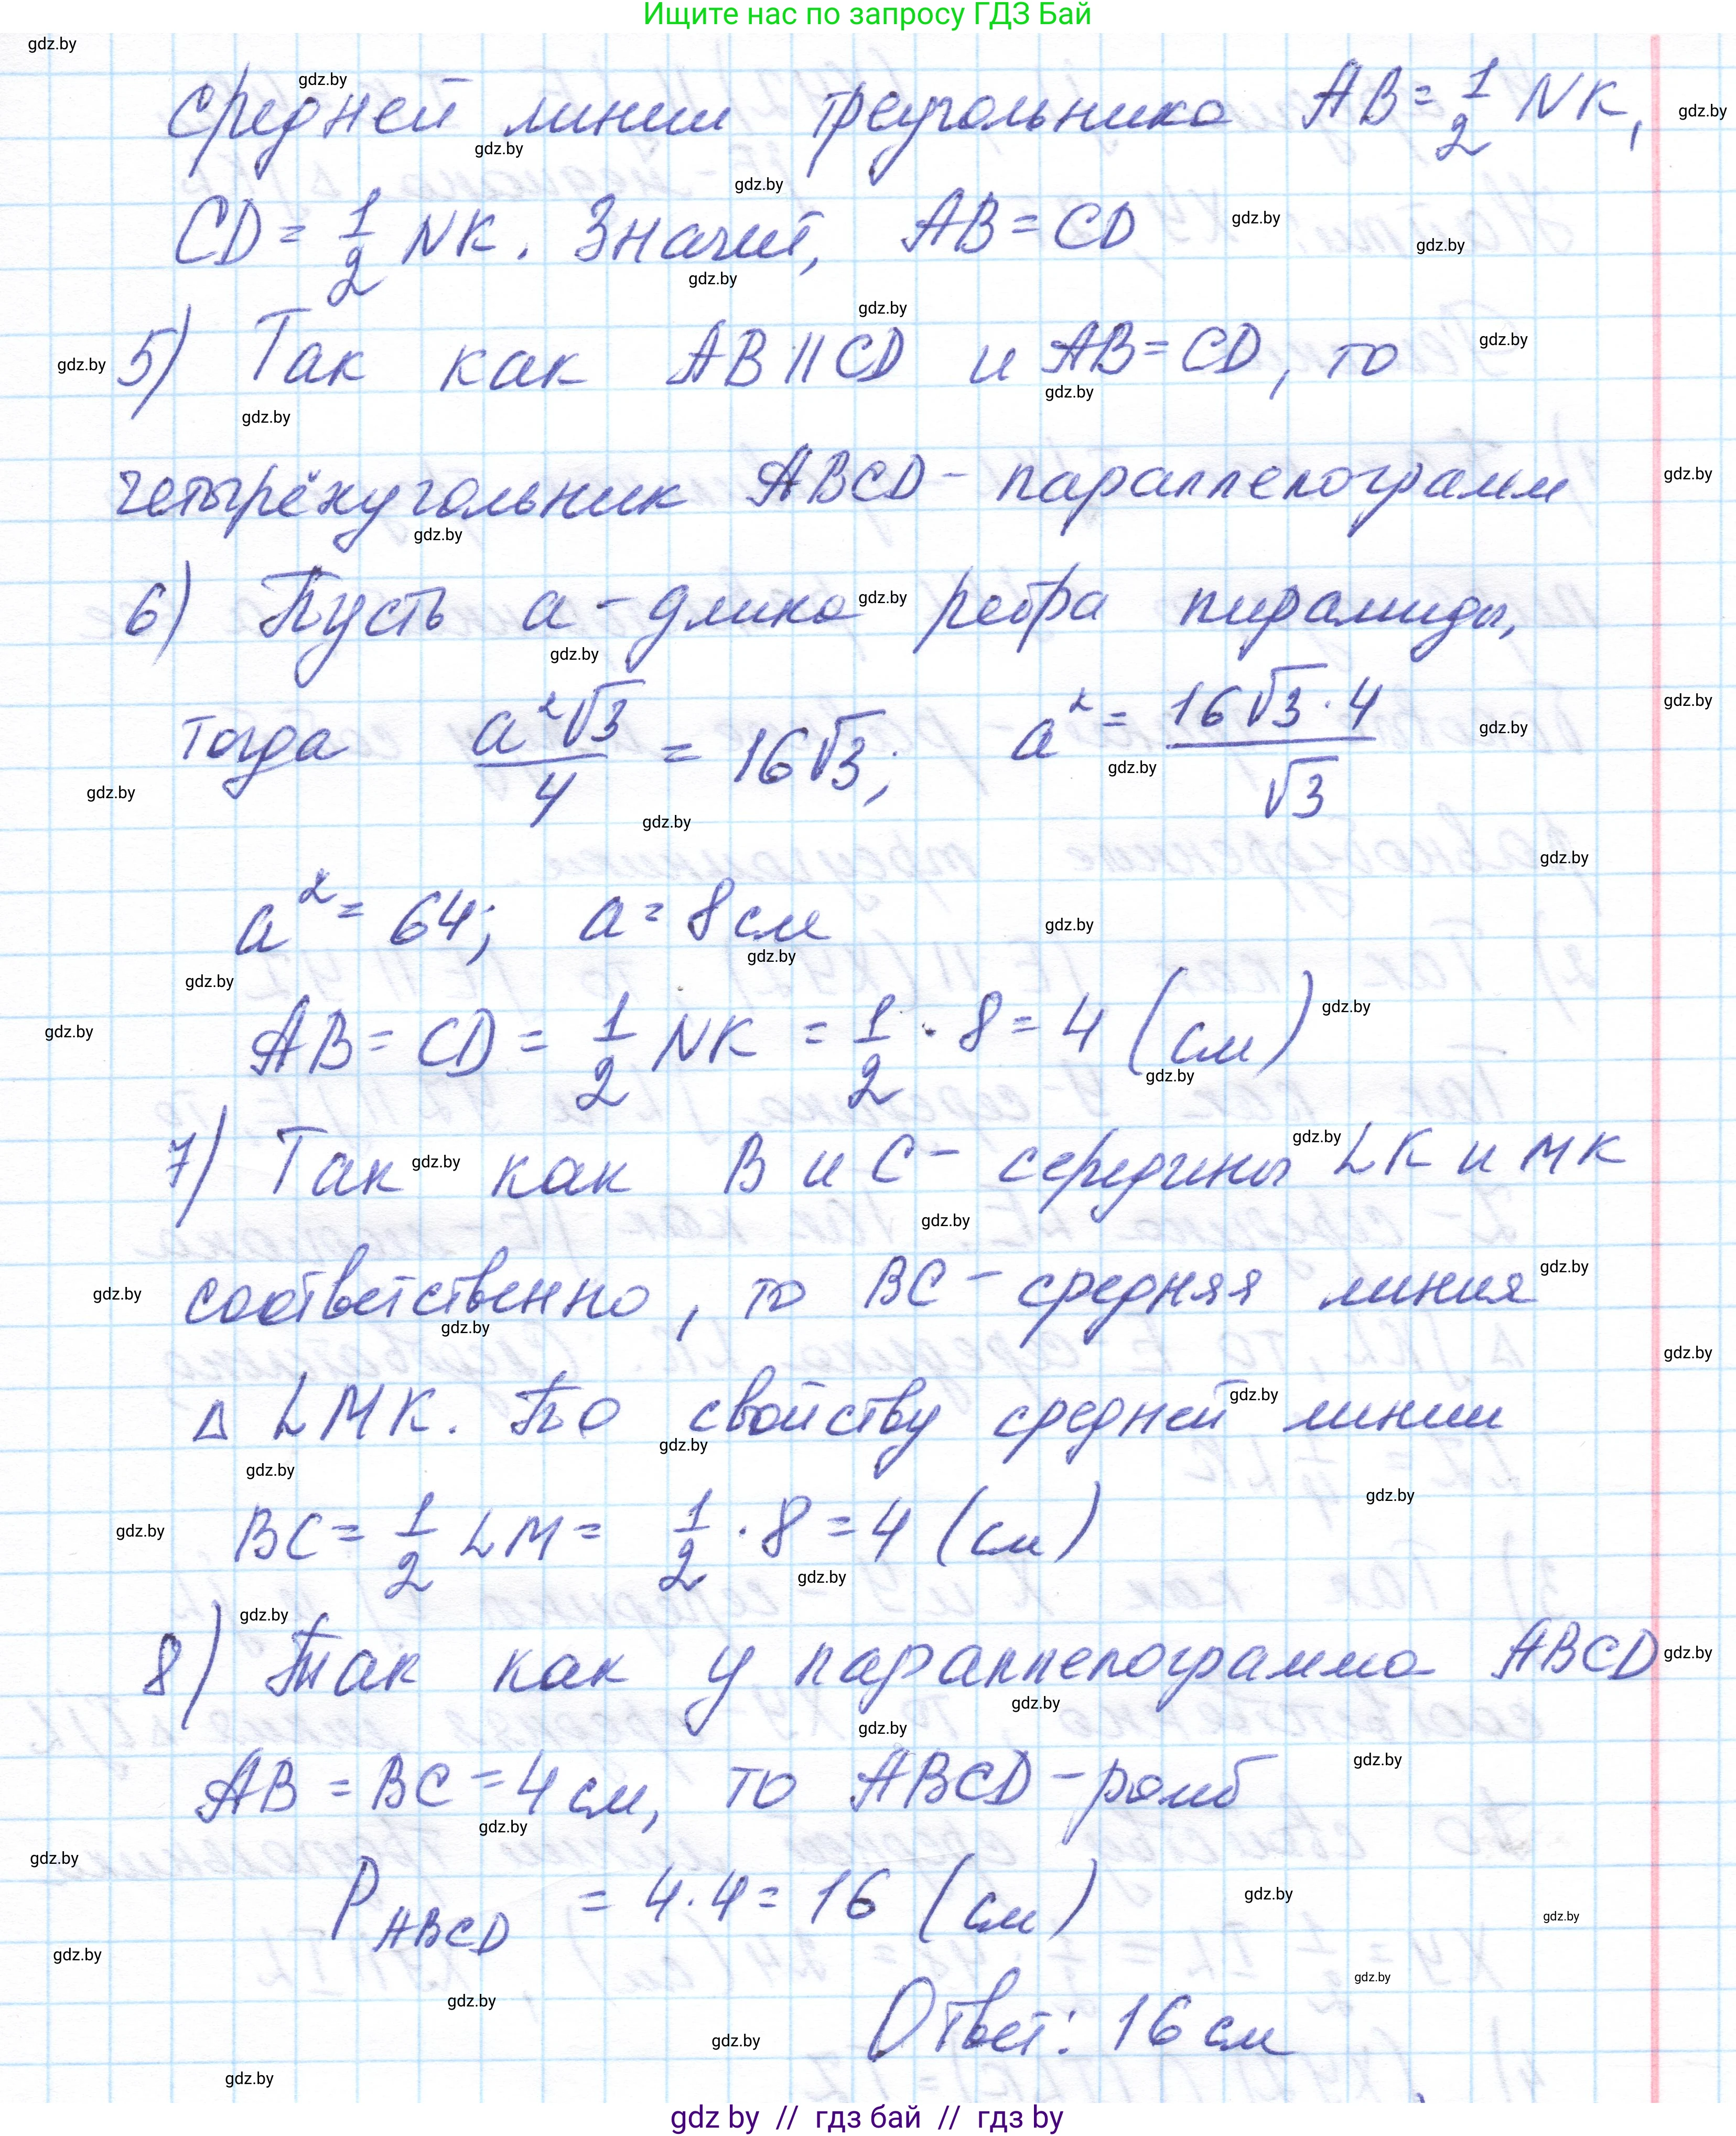 Ищите нас по запросу ГДЗ Бай
средней линии треугольника AB = 1/2 NK,
CD = 1/2 NK. Значит, AB = CD
5) Так как AB || CD и AB = CD, то
четырёхугольник ABCD - параллелограмм
6) Пусть a - длина ребра пирамиды,
тогда a²√3/4 = 16√3; a² = 16√3·4/√3
a² = 64; a = 8 см
AB = CD = 1/2 NK = 1/2 · 8 = 4 (см)
7) Так как B и C - середины LK и MK
соответственно, то BC - средняя линия
Δ LMK. По свойству средней линии
BC = 1/2 LM = 1/2 · 8 = 4 (см)
8) Так как у параллелограмма ABCD
AB = BC = 4 см, то ABCD - ромб
P ABCD = 4·4 = 16 (см)
Ответ: 16 см
gdz by // гдз бай // гдз by